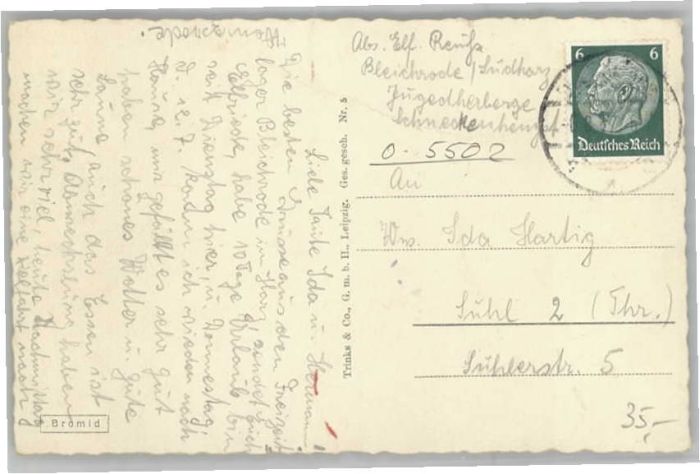 Liebe Tante Ida u. Hermann!
Die besten Grüsse aus den Freizeit
lager Bleichrode im Harz, sendet euch
Elfriede, habe 10 Tage Urlaub bin
seit Dienstag hier, u. Donnerstag
d. 12.7. komm ich wieder nach
Hause, uns gefällt es sehr gut
haben schönes Wetter u. gute
Laune, auch das Essen ist
sehr gut, Abwechslung haben
wir sehr viel, heute Nachmittag
machen wir eine Radfahrt nach
Abs. Elf.
Bleichrode / Südharz
Jugendherberge
0-5502
An
Ww. Ida Hartig
Suhl 2 (Thr.)
Suhlerstr. 5
35,-
6 6
Deutsches Reich
Trinks & Co., G. m. b. H., Leipzig. Ges. gesch. Nr. 5
Bromid